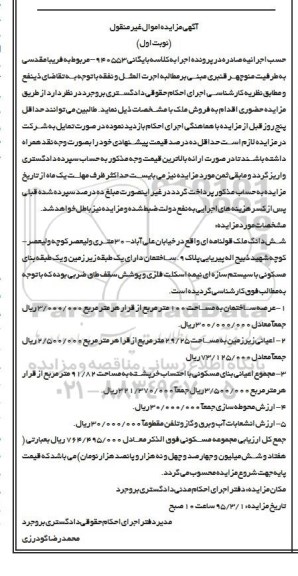 آگهی مزایده اموال غیر منقول
(نوبت اول)
حسب اجرائیه صادره در پرونده اجرا به کلاسه بایگانی ۹۴۰۵۵۳ - مربوط به فریبا مقدسی
به طرفیت منوچهر قنبری مبنی بر مطالبه اجرت المثل و نفقه با توجه به تقاضای ذینفع
و مطابق نظریه کارشناسی اجرای احکام حقوقی دادگستری بروجرد در نظر دارد از طریق
مزایده حضوری اقدام به فروش ملک با مشخصات ذیل نماید. طالبین می توانند حداقل
پنج روز قبل از مزایده با هماهنگی اجرای احکام بازدید نموده در صورت تمایل به شرکت
در مزایده لازم است حداقل ده درصد قیمت پیشنهادی خود را بصورت وجه نقد همراه
داشته باشند تا در صورت ارائه بالاترین قیمت وجه مذکور به حساب سپرده دادگستری
واریز گردد و مابقی ثمن مورد مزایده نیز می بایست حداکثر ظرف مهلت یک ماه از تاریخ
مزایده به حساب مذکور پرداخت گردد در غیر اینصورت مبلغ ده درصد سپرده شده قبلی
پس از کسر هزینه های اجرایی به نفع دولت ضبط شده و مزایده نیز باطل خواهد شد.
مشخصات مورد مزایده:
شش دانگ ملک قولنامه ای واقع در خیابان علی آباد - ۳۰ متری ولیعصر کوچه ولیعصر -
کوچه شهید ذبیح اله پیریایی پلاک ۹. ساختمان دارای یک طبقه زیرزمین و یک طبقه بنای
مسکونی با سیستم سازه ای نیمه اسکلت فلزی و پوشش سقف طاق ضربی بوده که با توجه
به مطالب فوق کارشناسی گردیده است.
۱- عرصه ساختمان به مساحت ۱۰۰ مترمربع از قرار هر مترمربع ۳/۰۰۰/۰۰۰ ریال
جمعاً معادل ۳۰۰/۰۰۰/۰۰۰ ریال.
۲- اعیانی زیرزمین به مساحت ۲۹/۲۵ مترمربع از قرار هر مترمربع ۲/۵۰۰/۰۰۰ ریال
جمعاً معادل ۷۳/۱۲۵/۰۰۰ ریال
۳- مجموع اعیانی بنای مسکونی با احتساب خرپشته به مساحت ۹۱/۸۲ مترمربع از قرار
هر مترمربع ۳/۵۰۰/۰۰۰ ریال جمعاً ۳۲۱/۳۷۰/۰۰۰ ریال.
۴- ارزش محوطه سازی جمعاً ۳۰/۰۰۰/۰۰۰ ریال.
۵- ارزش انشعابات آب و برق و گاز و تلفن مقطوعاً ۳۰/۰۰۰/۰۰۰ ریال.
جمع کل ارزیابی مجموعه مسکونی فوق الذکر معادل ۷۶۴/۴۹۵/۰۰۰ ریال بعبارتی (
هفتاد و شش میلیون و چهارصد و چهل و نه هزار و پانصد هزار تومان) می باشد که قیمت
پایه جهت شروع مزایده محسوب می گردد.
مکان مزایده: دفتر اجرای احکام مدنی دادگستری بروجرد
تاریخ مزایده: ۹۵/۳/۱ ساعت ۱۰ صبح
مدیر دفتر اجرای احکام حقوقی دادگستری بروجرد
محمدرضا گودرزی
پایگاه اطلاع رسانی مناقصه و مزایده